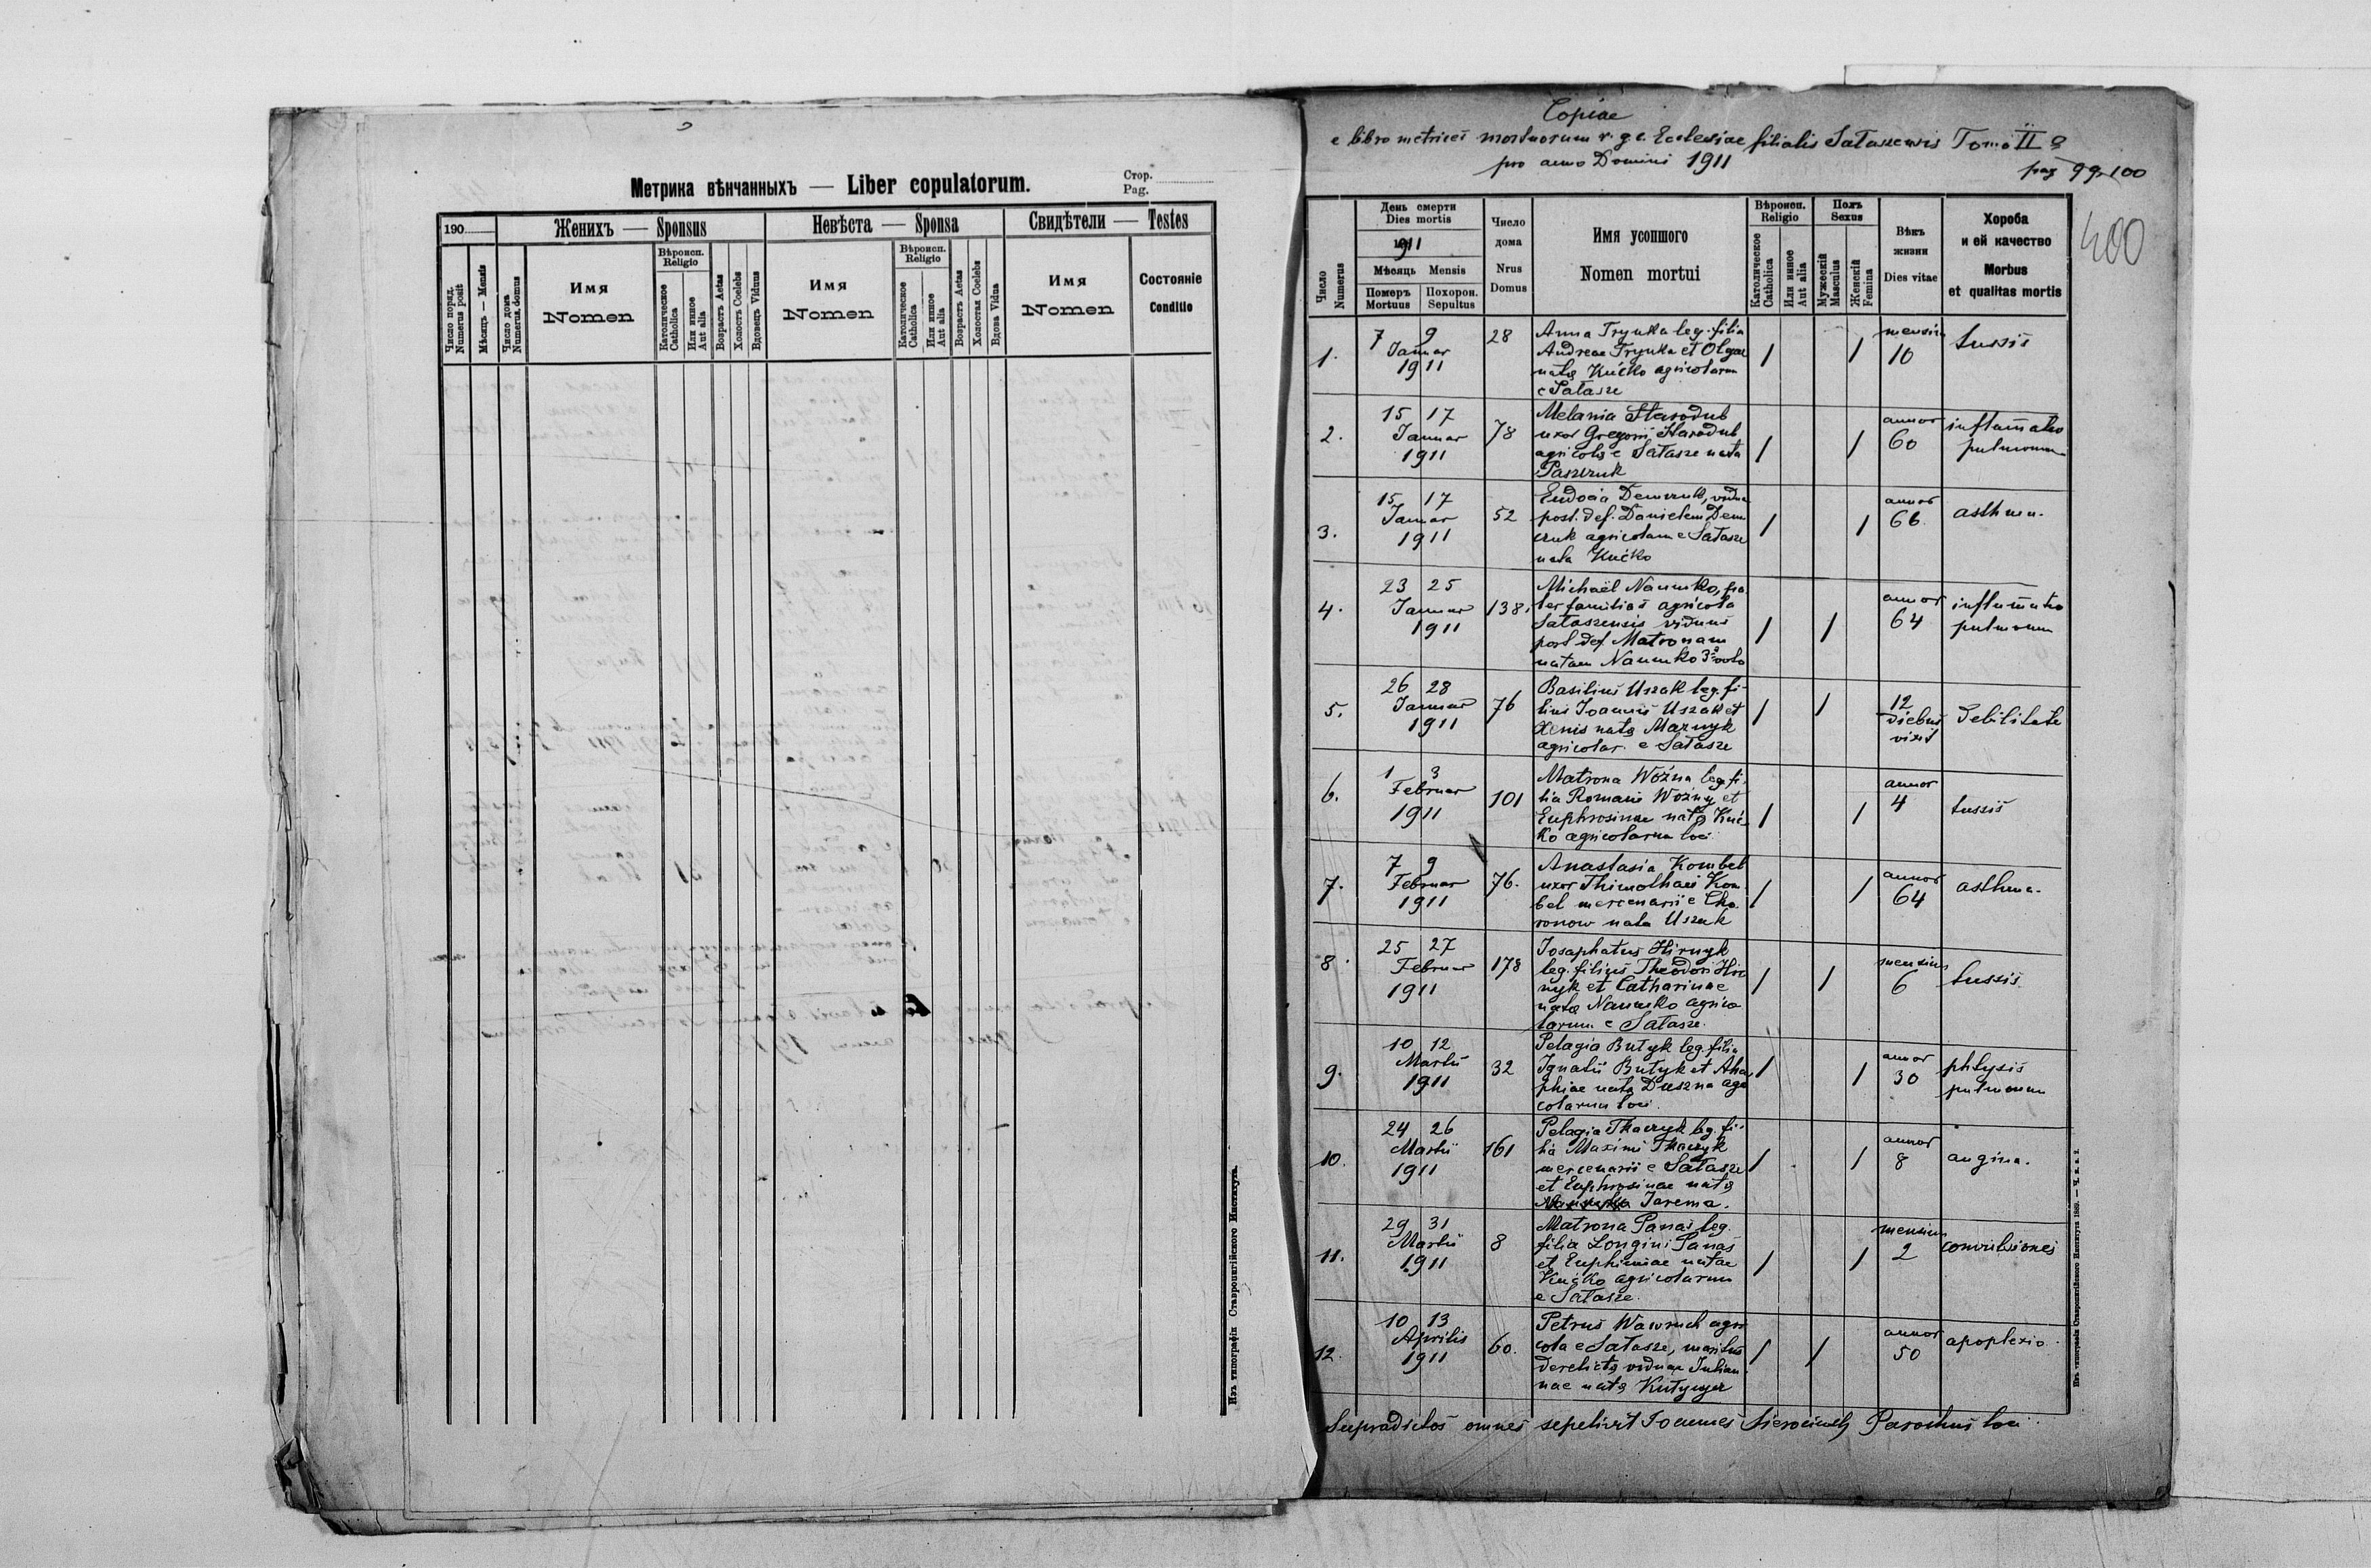 Метрика вѣнчанныхъ — Liber copulatorum.
Стор.
Pag.
190
Женихъ — Sponsus
Невѣста — Sponsa
Свидѣтели — Testes
Число поряд.
Numerus posit
Мѣсяць — Mensis
Число дома
Numerus domus
Имя
Nomen
Вѣроисп.
Religio
Католическое
Catholica
Или иниое
Aut alia
Возрасть Aetas
Холость Coelebs
Вдовець Viduus
Имя
Nomen
Вѣроисп.
Religio
Католическое
Catholica
Или иниое
Aut alia
Возрасть Aetas
Холостая Coelebs
Вдова Vidua
Имя
Nomen
Состояніе
Conditio
Изъ типографіи Ставропигійского Института.
Copiae
e libro metrices mortuorum r. g. c. Ecclesiae filialis Sałaszensis Tomi II
pro anno Domini 1911
pag 99-100
400
Число
Numerus
День смерти
Dies mortis
1911
Мѣсяць Mensis
Померъ Mortuus
Похорон. Sepultus
Число
дома
Nrus
Domus
Имя усопшого
Nomen mortui
Вѣроисп.
Religio
Католическое
Catholica
Или иниое
Aut alia
Полъ
Sexus
Мужескій
Masculus
Женскій
Femina
Вѣкъ
жизни
Dies vitae
Хороба
и ей качество
Morbus
et qualitas mortis
1. 7 9 Januar 1911 28
Anna Trynka leg. filia
Andreae Trynka et Olgae
natą Kućko agricolarum
e Sałasze
1 1 mensium 10 tussis
2. 15 17 Januar 1911 78
Melania Starodub
uxor Gregorii Starodub
agricolą e Sałasze nata
Paszczuk
1 1 annor 60 inflamatio pulmonum
3. 15 17 Januar 1911 52
Eudocia Demczuk, vidua
post. def. Danielem Dem
czuk agricolam e Sałasze
nata Kućko
1 1 annor 66 asthma.
4. 23 25 Januar 1911 138.
Michaël Naumko, pa
ter familias agricola
Sałaszensis viduus
post def. Matronam
natam Naumko 3º voto
1 1 annor 64 inflamatio pulmonum
5. 26 28 Januar 1911 76
Basilius Uszak leg. fi-
lius Joannis Uszak et
Xenis natą Maznyk
agricolar. e Sałasze
1 1 12 diebus vixit debilitate
6. 1 3 Februar 1911 101
Matrona Woźna leg. fi-
lia Romani Woźny et
Euphrosinae natą Kuć
ko agricolarum loci
1 1 annor 4 tussis
7. 7 9 Februar 1911 76.
Anastasia Kombel
uxor Thimothaei Kom
bel mercenarii e Cho
ronow nata Uszak
1 1 annor 64 asthma.
8. 25 27 Februar 1911 178
Josaphatus Hirnyk
leg. filius Theodori Hir
nyk et Catharinae
natą Naumko agrico
larum e Sałasze.
1 1 mensium 6 tussis
9. 10 12 Martii 1911 32
Pelagia Butyk leg. filia
Ignatii Butyk et Aha
phiae natą Duszna agri
colarum loci.
1 1 annor 30 phtysis pulmonum
10. 24 26 Martii 1911 161
Pelagia Tkaczyk leg. fi-
lia Maximi Tkaczyk
mercenarii e Sałasze
et Euphrosinae natą
Jarema.
1 1 annor 8 angina.
11. 29 31 Martii 1911 8
Matrona Panas leg.
filia Longini Panas
et Euphimiae natae
Kućko agricolarum
e Sałasze.
1 1 mensium 2 convulsiones
12. 10 13 Aprilis 1911 60.
Petrus Wawruch agri
cola e Sałasze, maritus
derelictą viduae Julian
nae natą
1 1 annor 50 apoplexio.
Supradictos omnes sepelivit Joannes Parochus loci.
Изъ типографіи Ставропигійского Института 1889. —